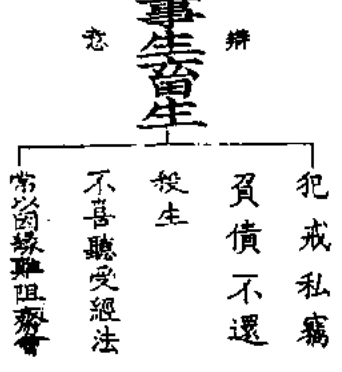 辯
事生畜生
意
犯戒私竊
負債不還
殺生
不喜聽受經法
常以因緣難阻齋會